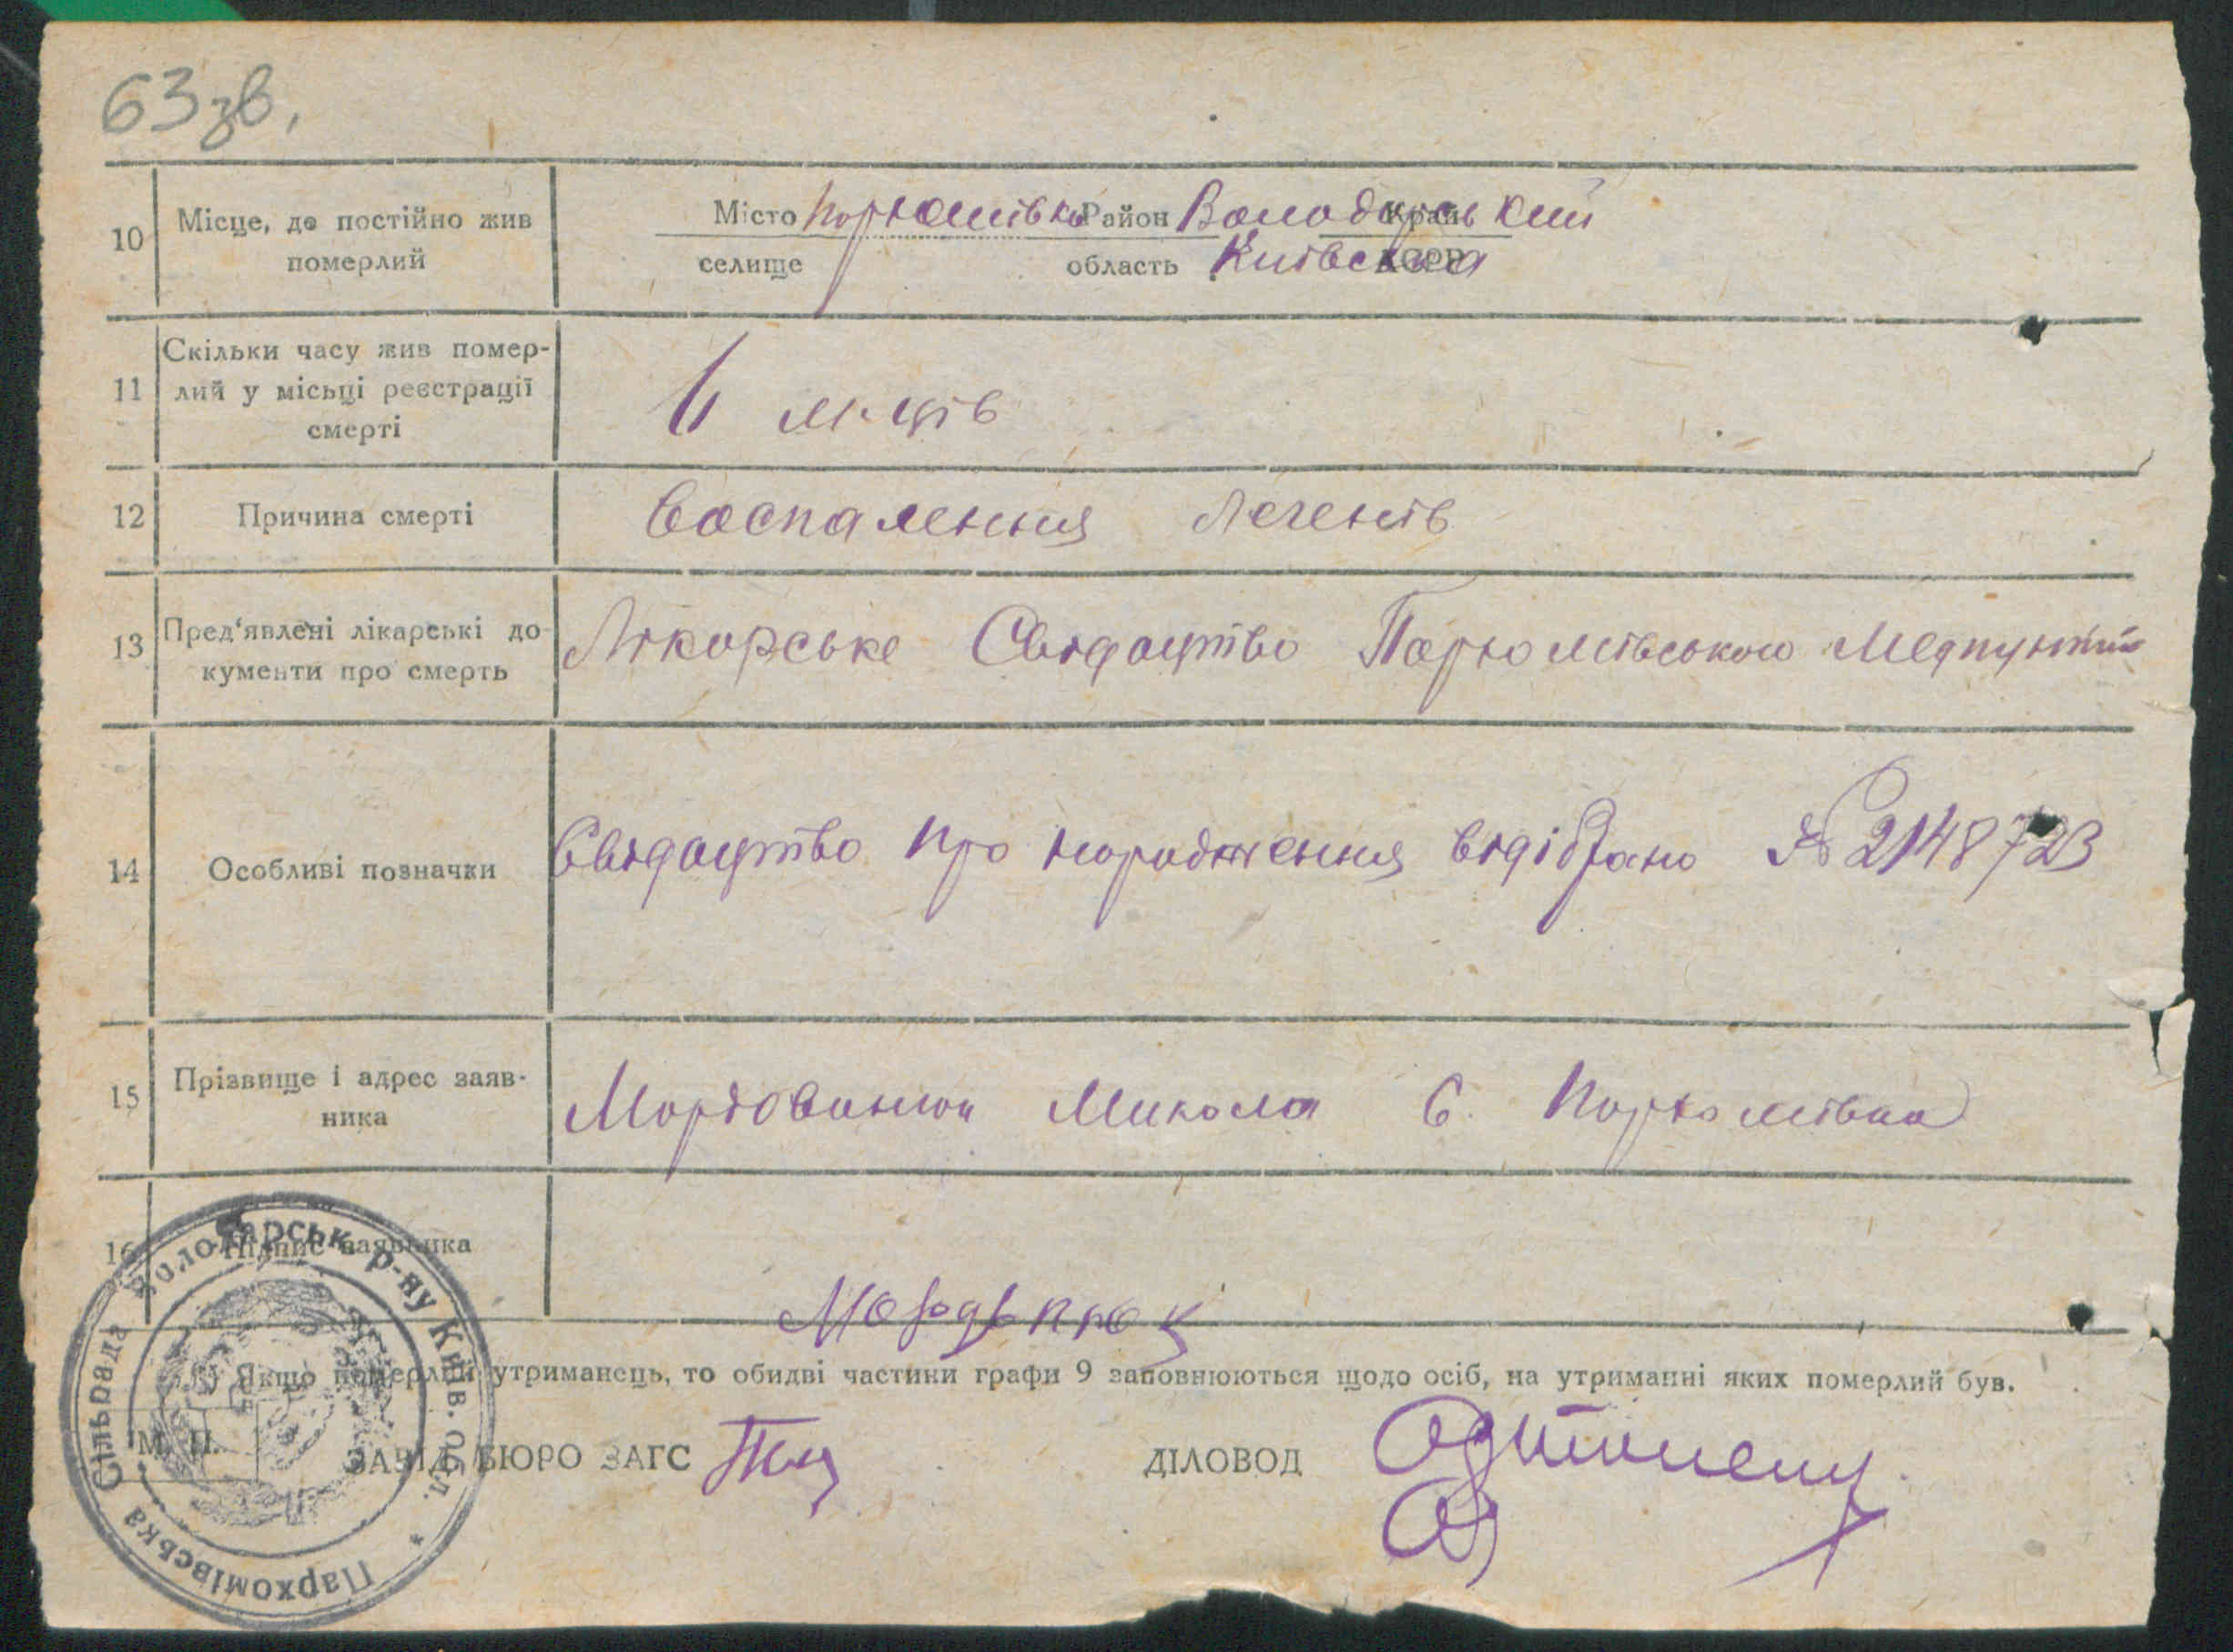 63 зв.
10 Місце, де постійно жив померлий
Місто Пархомівка Район Володарський Край
селище область Київська АСРР
11 Скільки часу жив помер-
лий у місьці реєстрації
смерті
м-ців
12 Причина смерті Воспалення легенів
13 Пред'явлені лікарські до
кументи про смерть
Лікарське Свідацтво Пархомівського Медпункту
14 Особливі позначки Свідацтво про народження відібрано № 2148723
15 Прізвище і адрес заяв-
ника
Микола С. Пархомівка
16 Підпис заявника
Якщо померлий утриманець, то обидві частини графи 9 заповнюються щодо осіб, на утриманні яких померлий був.
М. П. ЗАВІД. БЮРО ЗАГС ДІЛОВОД
Пархомівська Сільрада Володарськ. р-ну Київ. Обл. *